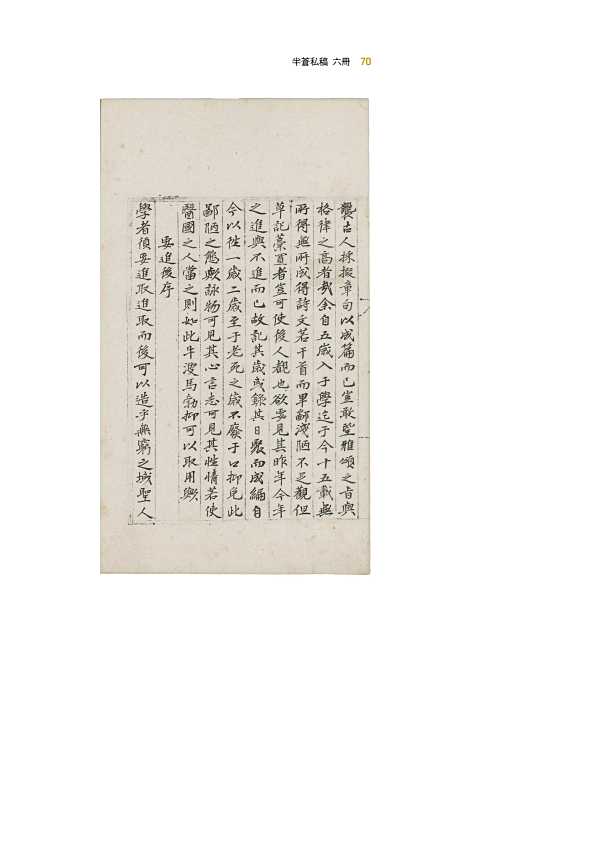 半蒼私稿 六冊 70
襲古人採掇章句以成篇而已豈敢望雅頌之旨與
格律之高者哉余自五歲入于學迄于今十五載無
所得無所成得詩文若干首而畢鄙淺陋不足觀但
草記藁耳者豈可使後人觀也欲要見其昨年今年
之進與不進而已故記其歲或錄其日聚而成編自
今以徃一歲二歲至于老死之歲不廢于口抑免此
鄙陋之態歟詠物可見其心言志可見其性情若使
醫國之人當之則如此牛溲馬勃抑可以取用歟
要進後序
學者須要進取進取而後可以造乎無窮之域聖人